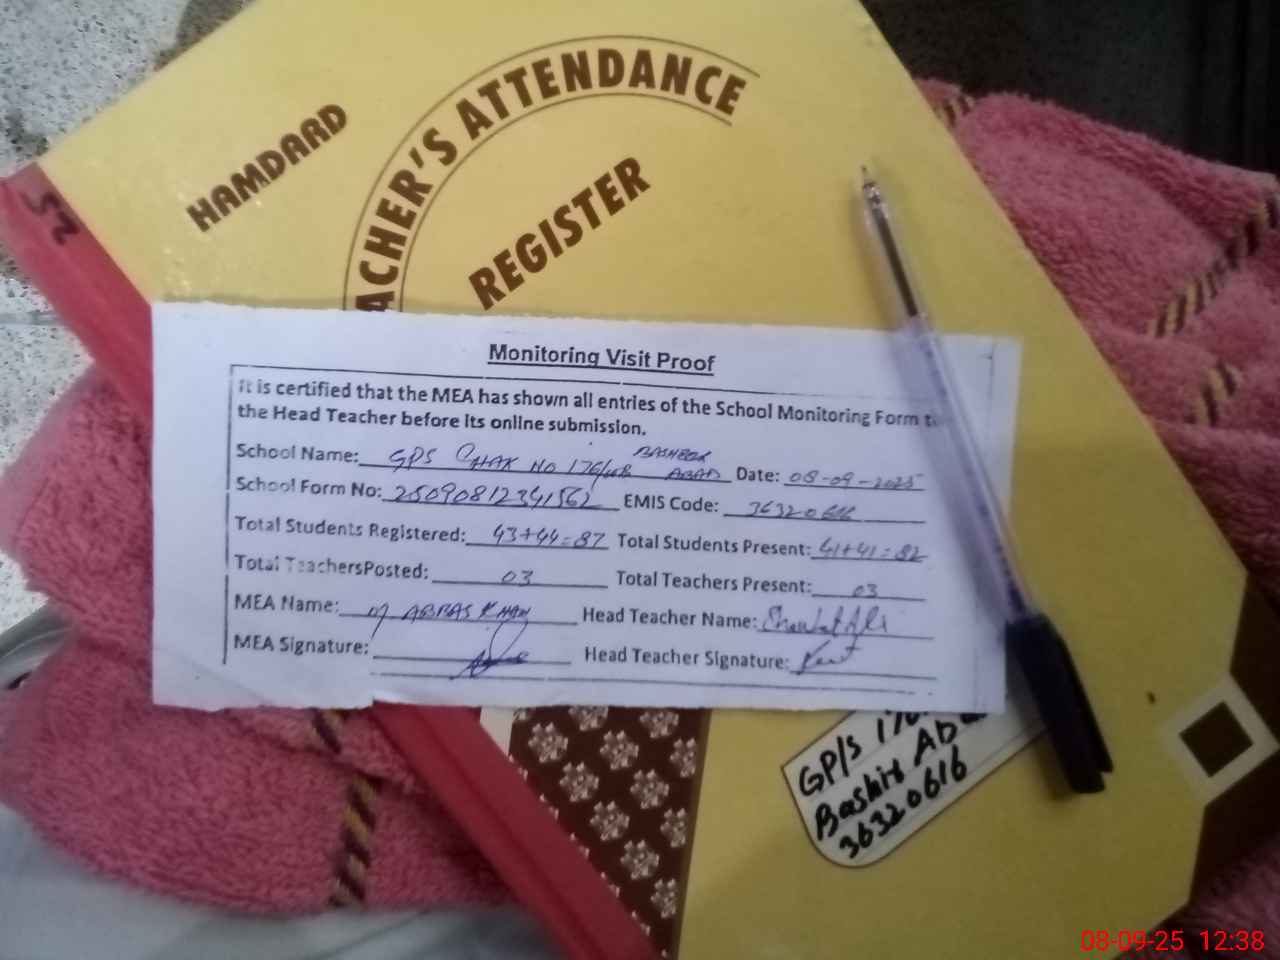 HAMDARD
ACHER'S ATTENDANCE
REGISTER
52
Monitoring Visit Proof
It is certified that the MEA has shown all entries of the School Monitoring Form to
the Head Teacher before its online submission.
School Name: GPS CHAK NO 176/WB BASHEER ABAD Date: 08-09-2025
School Form No: 25090812341562 EMIS Code: 36320616
Total Students Registered: 43+44=87 Total Students Present: 41+41=82
Total TeachersPosted: 03 Total Teachers Present: 03
MEA Name: M ABBAS KHAN Head Teacher Name: Shaukat Ali
MEA Signature: Head Teacher Signature:
GP/S 176
Bashir Ab
36320616
08-09-25 12:38